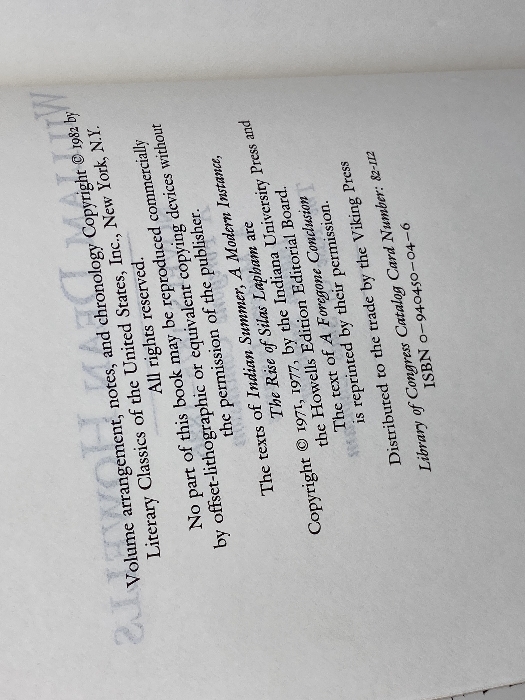 Volume arrangement, notes, and chronology Copyright © 1982 by
Literary Classics of the United States, Inc., New York, N.Y.
All rights reserved.
No part of this book may be reproduced commercially
by offset-lithographic or equivalent copying devices without
the permission of the publisher.
The texts of Indian Summer, A Modern Instance,
The Rise of Silas Lapham are
Copyright © 1971, 1977, by the Indiana University Press and
the Howells Edition Editorial Board.
The text of A Foregone Conclusion
is reprinted by their permission.
Distributed to the trade by the Viking Press
Library of Congress Catalog Card Number: 82-112
ISBN 0-940450-04-6
WILLIAM DEAN HOWELLS